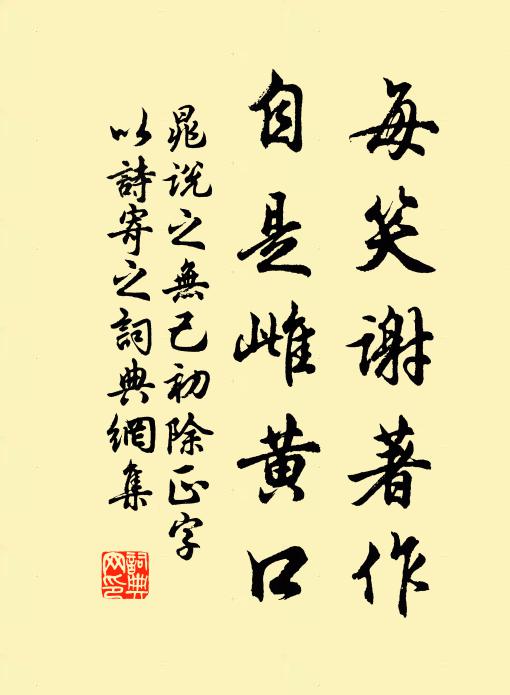 每笑謝著作
自是雌黄口
晁說之無己初除正字
以詩寄之詞典網集
詞典
网印